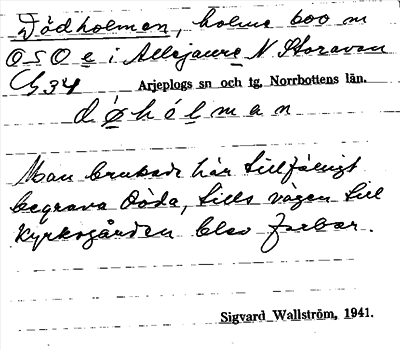 Dödholmen, holme 600 m
OSO e i Allejaure N Storavan
G 34 Arjeplogs sn och tg, Norrbottens län.
dø̀hólman
Man brukade här tillfälligt
begrava döda, tills vägen till
kyrkogården blev farbar.
Sigvard Wallström, 1941.